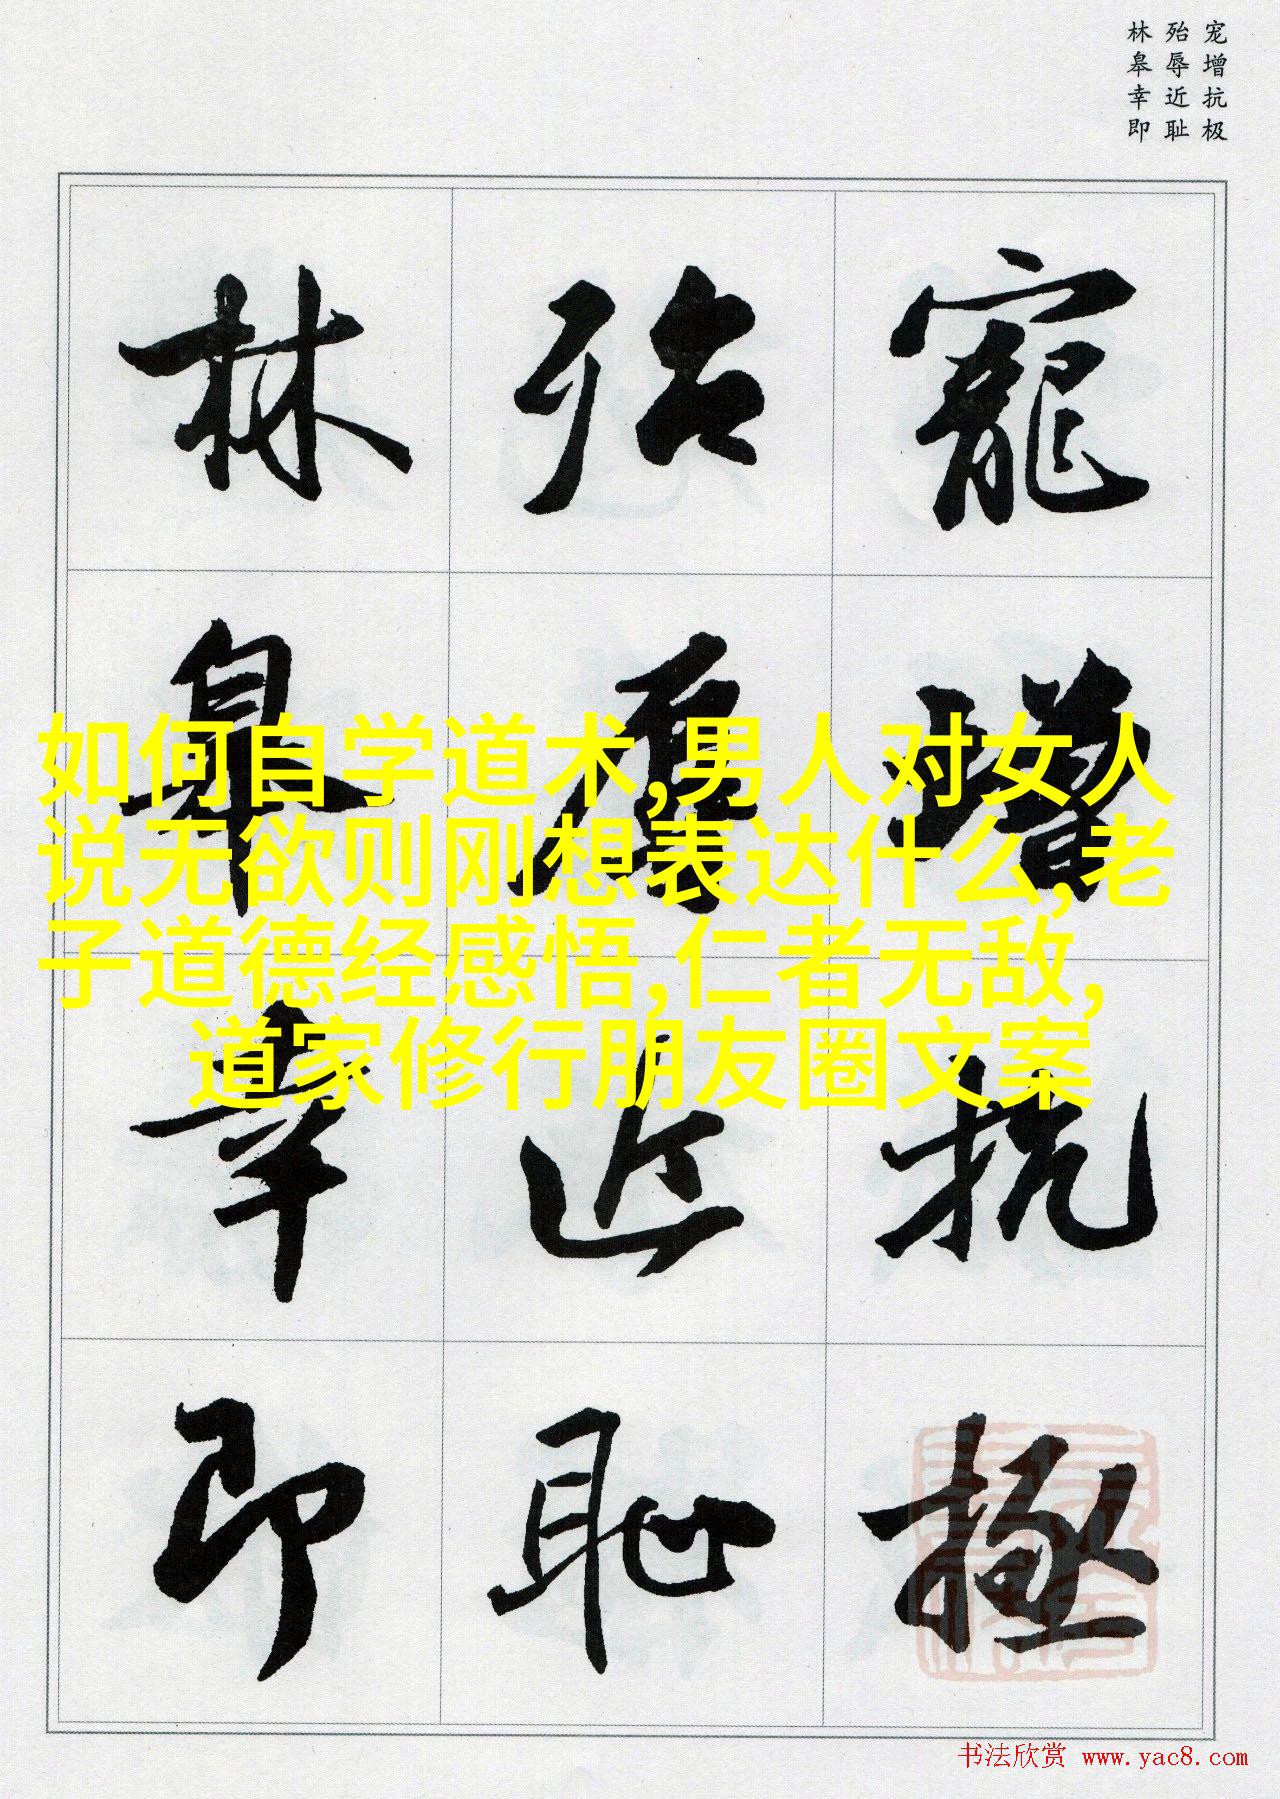 宠增抗极
殆辱近耻
林皋幸即
寵增抗極
殆辱近恥
林皋幸即
如何自学道术,男人对女人
说无欲则刚想表达什么,老
子道德经感悟,仁者无敌,
道家修行朋友圈文案
书法欣赏 www.yac8.com